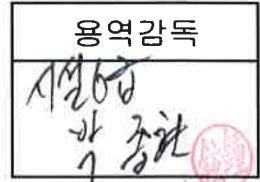 용역감독
시설6급
박 종현